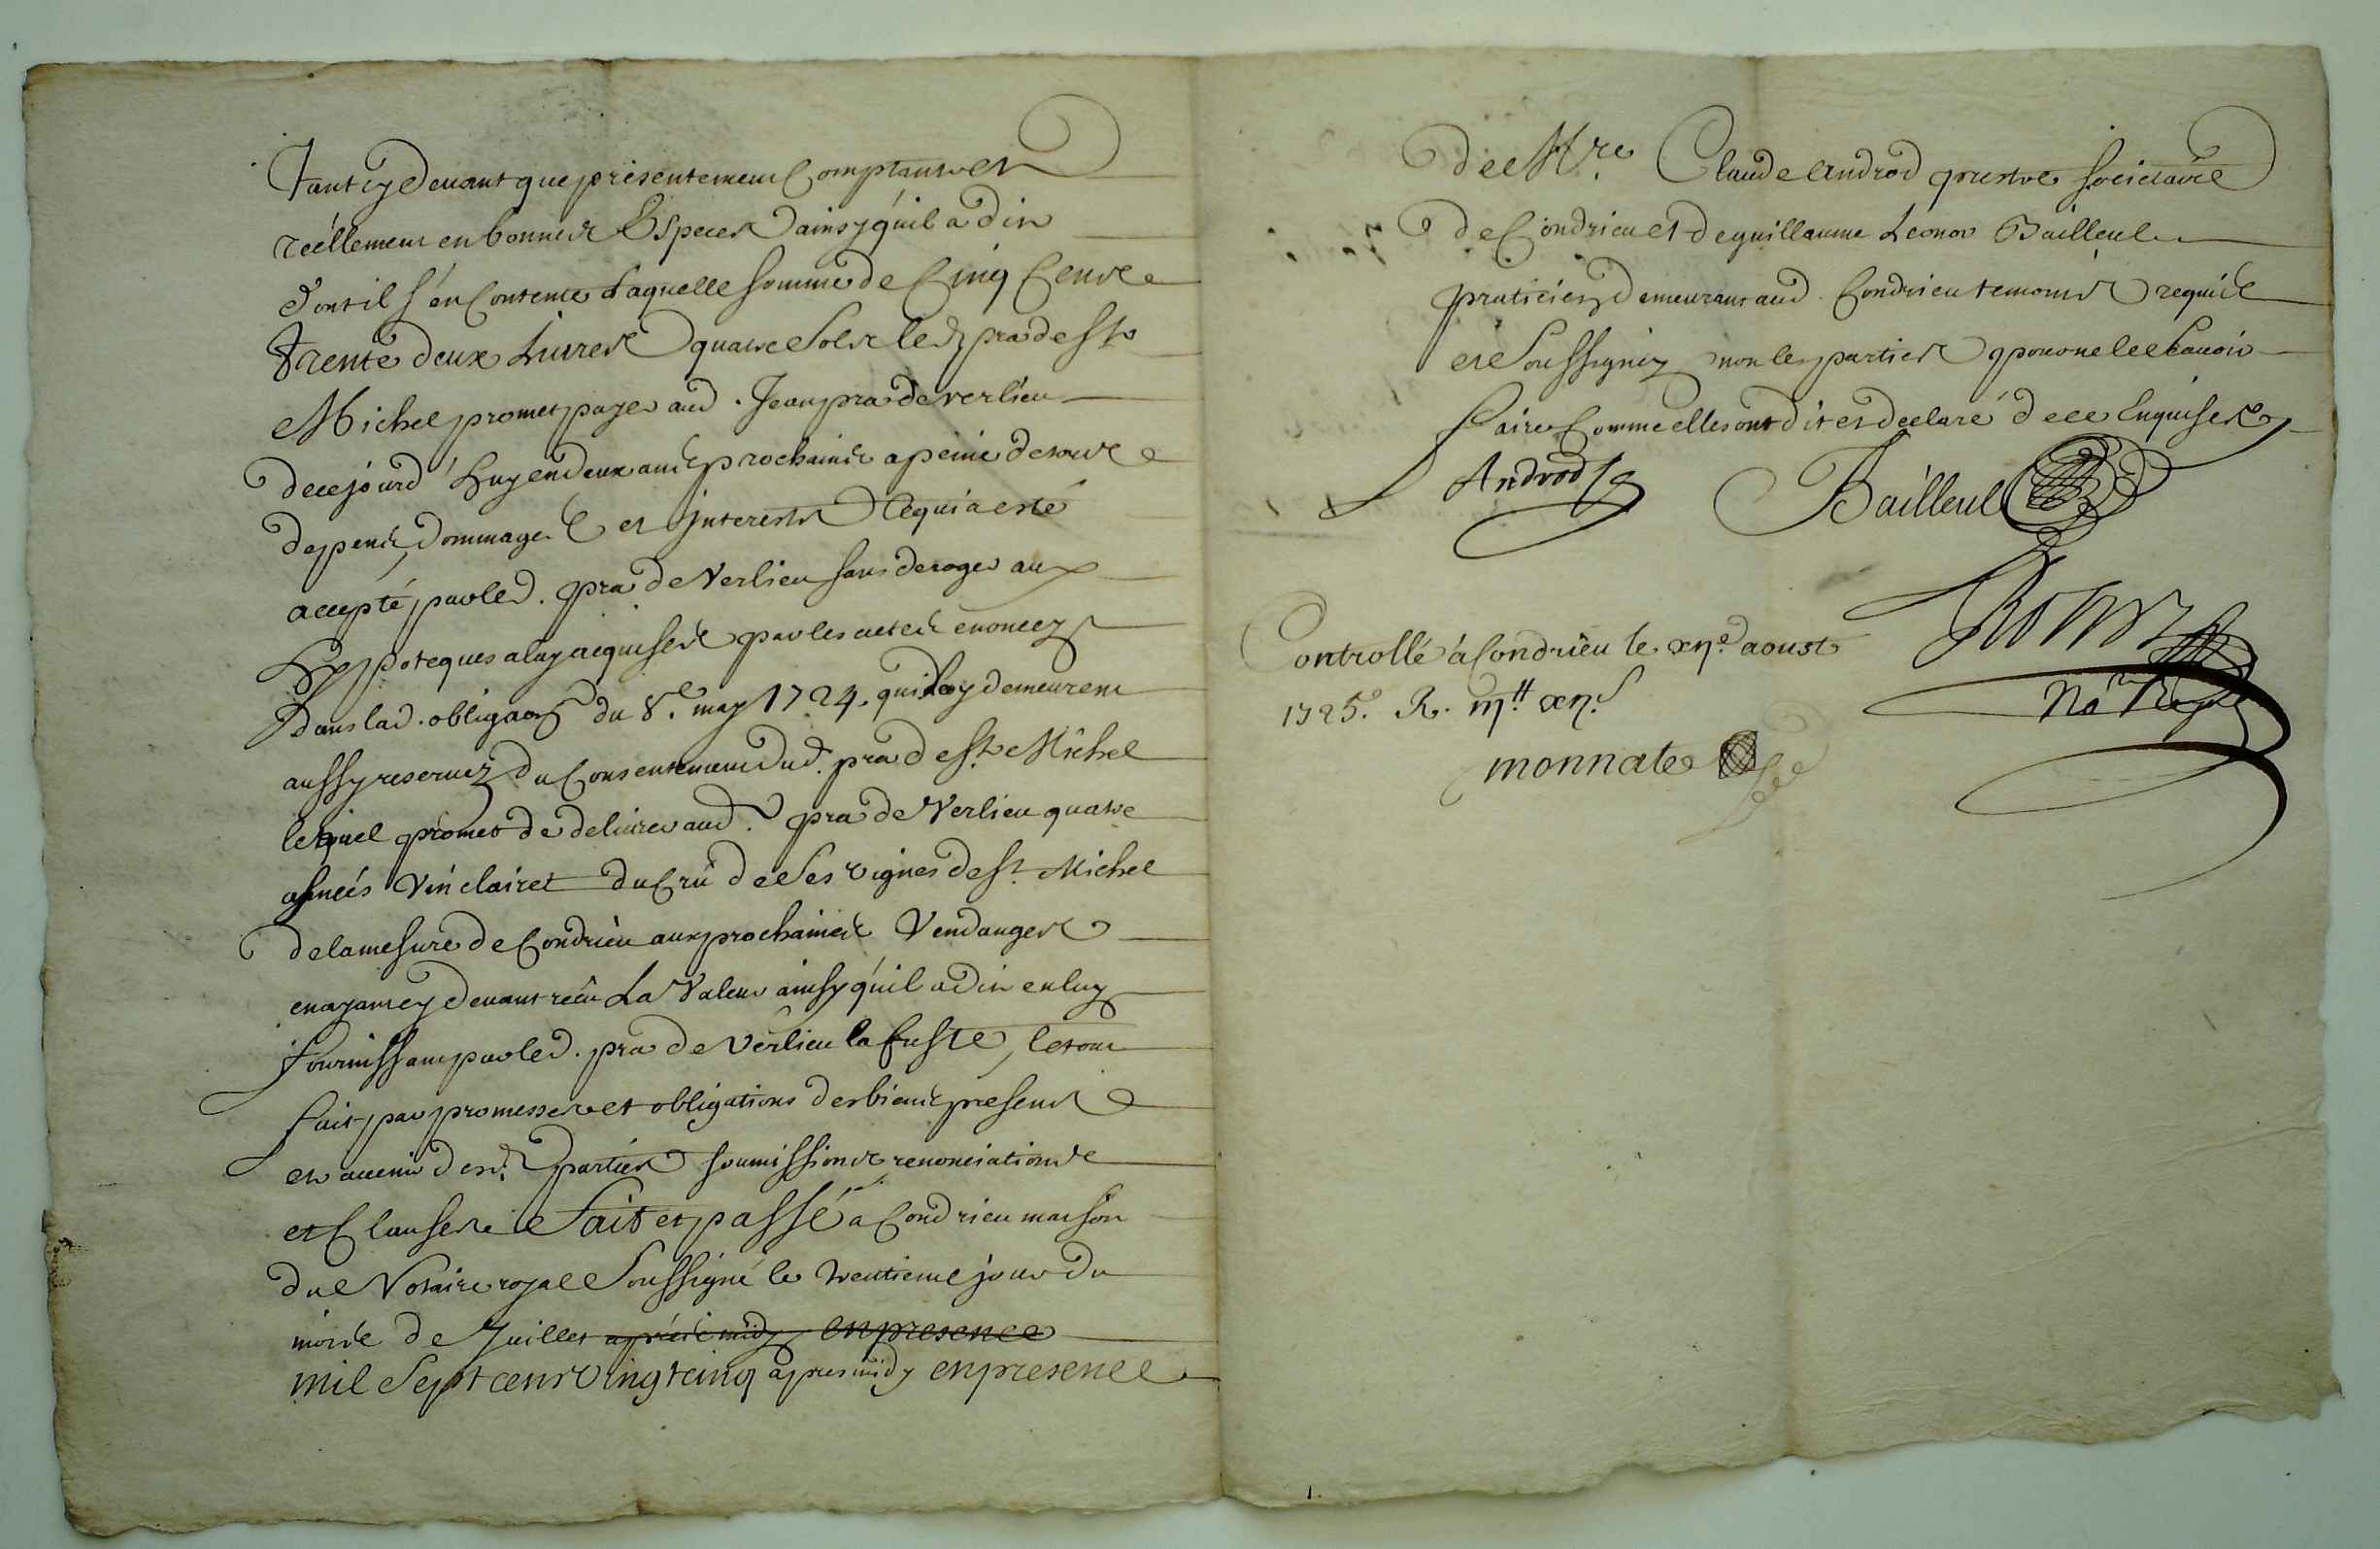 Tant cy devant que presentement Comptant et
reéllement en bonnes Especes ainsy qu'il a dit
dont il s'en Contente Laquelle somme de Cinq Cents
trente deux Livres quatre Sols led. pra de St
Michel promet payer aud. Jean pra de verlieu
de ce jourd'huy en deux ans prochains a peine de tous
depens, dommages et interests Ce qui a esté
accepté par led. pra de Verlieu sans deroger aux
hypoteques a luy acquises par les actes enoncez
dans lad. obligaon du 8e. may 1724. qui luy demeurent
aussy reservez du Consentement dud. pra de St. Michel
lequel promet de delivrer aud. pra de Verlieu quatre
asneés Vin clairet du Crû de Ses vignes de St. Michel
de la mesure de Condrieu aux prochaines Vendanges
en ayant cy devant reçû La Valeur ainsy qu'il a dit en luy
fournissant par led. pra de Verlieu la fuste, le tout
fait par promesses et obligations des biens presens
et avenir desd. parties soumissions renonciations
et Clauses Fait et passé a Condrieu maison
du Notaire royal Soussigné le trentieme jour du
mois de Juillet après midy en presence
mil Sept cent vingt cinq apres midy en presence
de Mre. Claude Androd prestre societaire
de Condrieu et de guillaume Leonor Bailleul
praticien demeurant aud. Condrieu temoins requis
et Soussignez non les parties pour ne le sçavoir
faire Comme elles ont dit et declaré de ce Enquises
Androd Bailleul
Controllé à Condrieu le xije. aoust
1725. R. iij# xijs
monnate
No.re